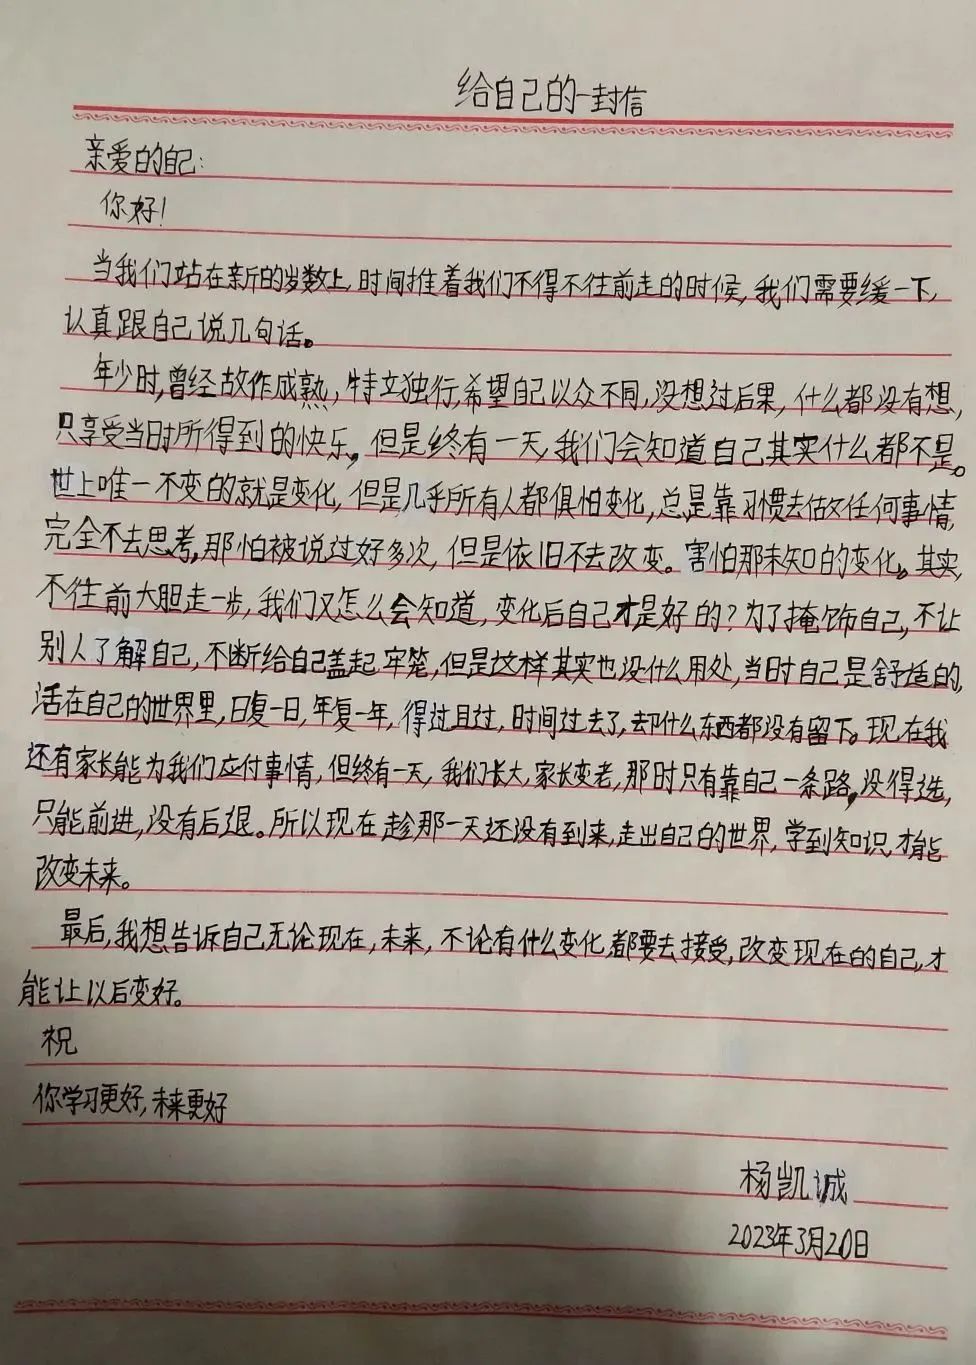 给自己的一封信
亲爱的自己:
你好!
当我们站在新的岁数上,时间推着我们不得不往前走的时候,我们需要缓一下,
认真跟自己说几句话。
年少时,曾经故作成熟,特立独行,希望自己以众不同,没想过后果,什么都没有想,
只享受当时所得到的快乐。但是终有一天,我们会知道自己其实什么都不是。
世上唯一不变的就是变化,但是几乎所有人都俱怕变化,总是靠习惯去做任何事情,
完全不去思考,那怕被说过好多次,但是依旧不去改变。害怕那未知的变化。其实,
不往前大胆走一步,我们又怎么会知道,变化后自己才是好的?为了掩饰自己,不让
别人了解自己,不断给自己盖起牢笼,但是这样其实也没什么用处,当时自己是舒适的,
活在自己的世界里,日复一日,年复一年,得过且过,时间过去了,却什么东西都没有留下。现在我
还有家长能为我们应付事情,但终有一天,我们长大,家长变老,那时只有靠自己一条路,没得选,
只能前进,没有后退。所以现在趁那一天还没有到来,走出自己的世界,学到知识,才能
改变未来。
最后,我想告诉自己无论现在,未来,不论有什么变化,都要去接受,改变现在的自己,才
能让以后变好。
祝
你学习更好,未来更好
杨凯诚
2023年3月20日